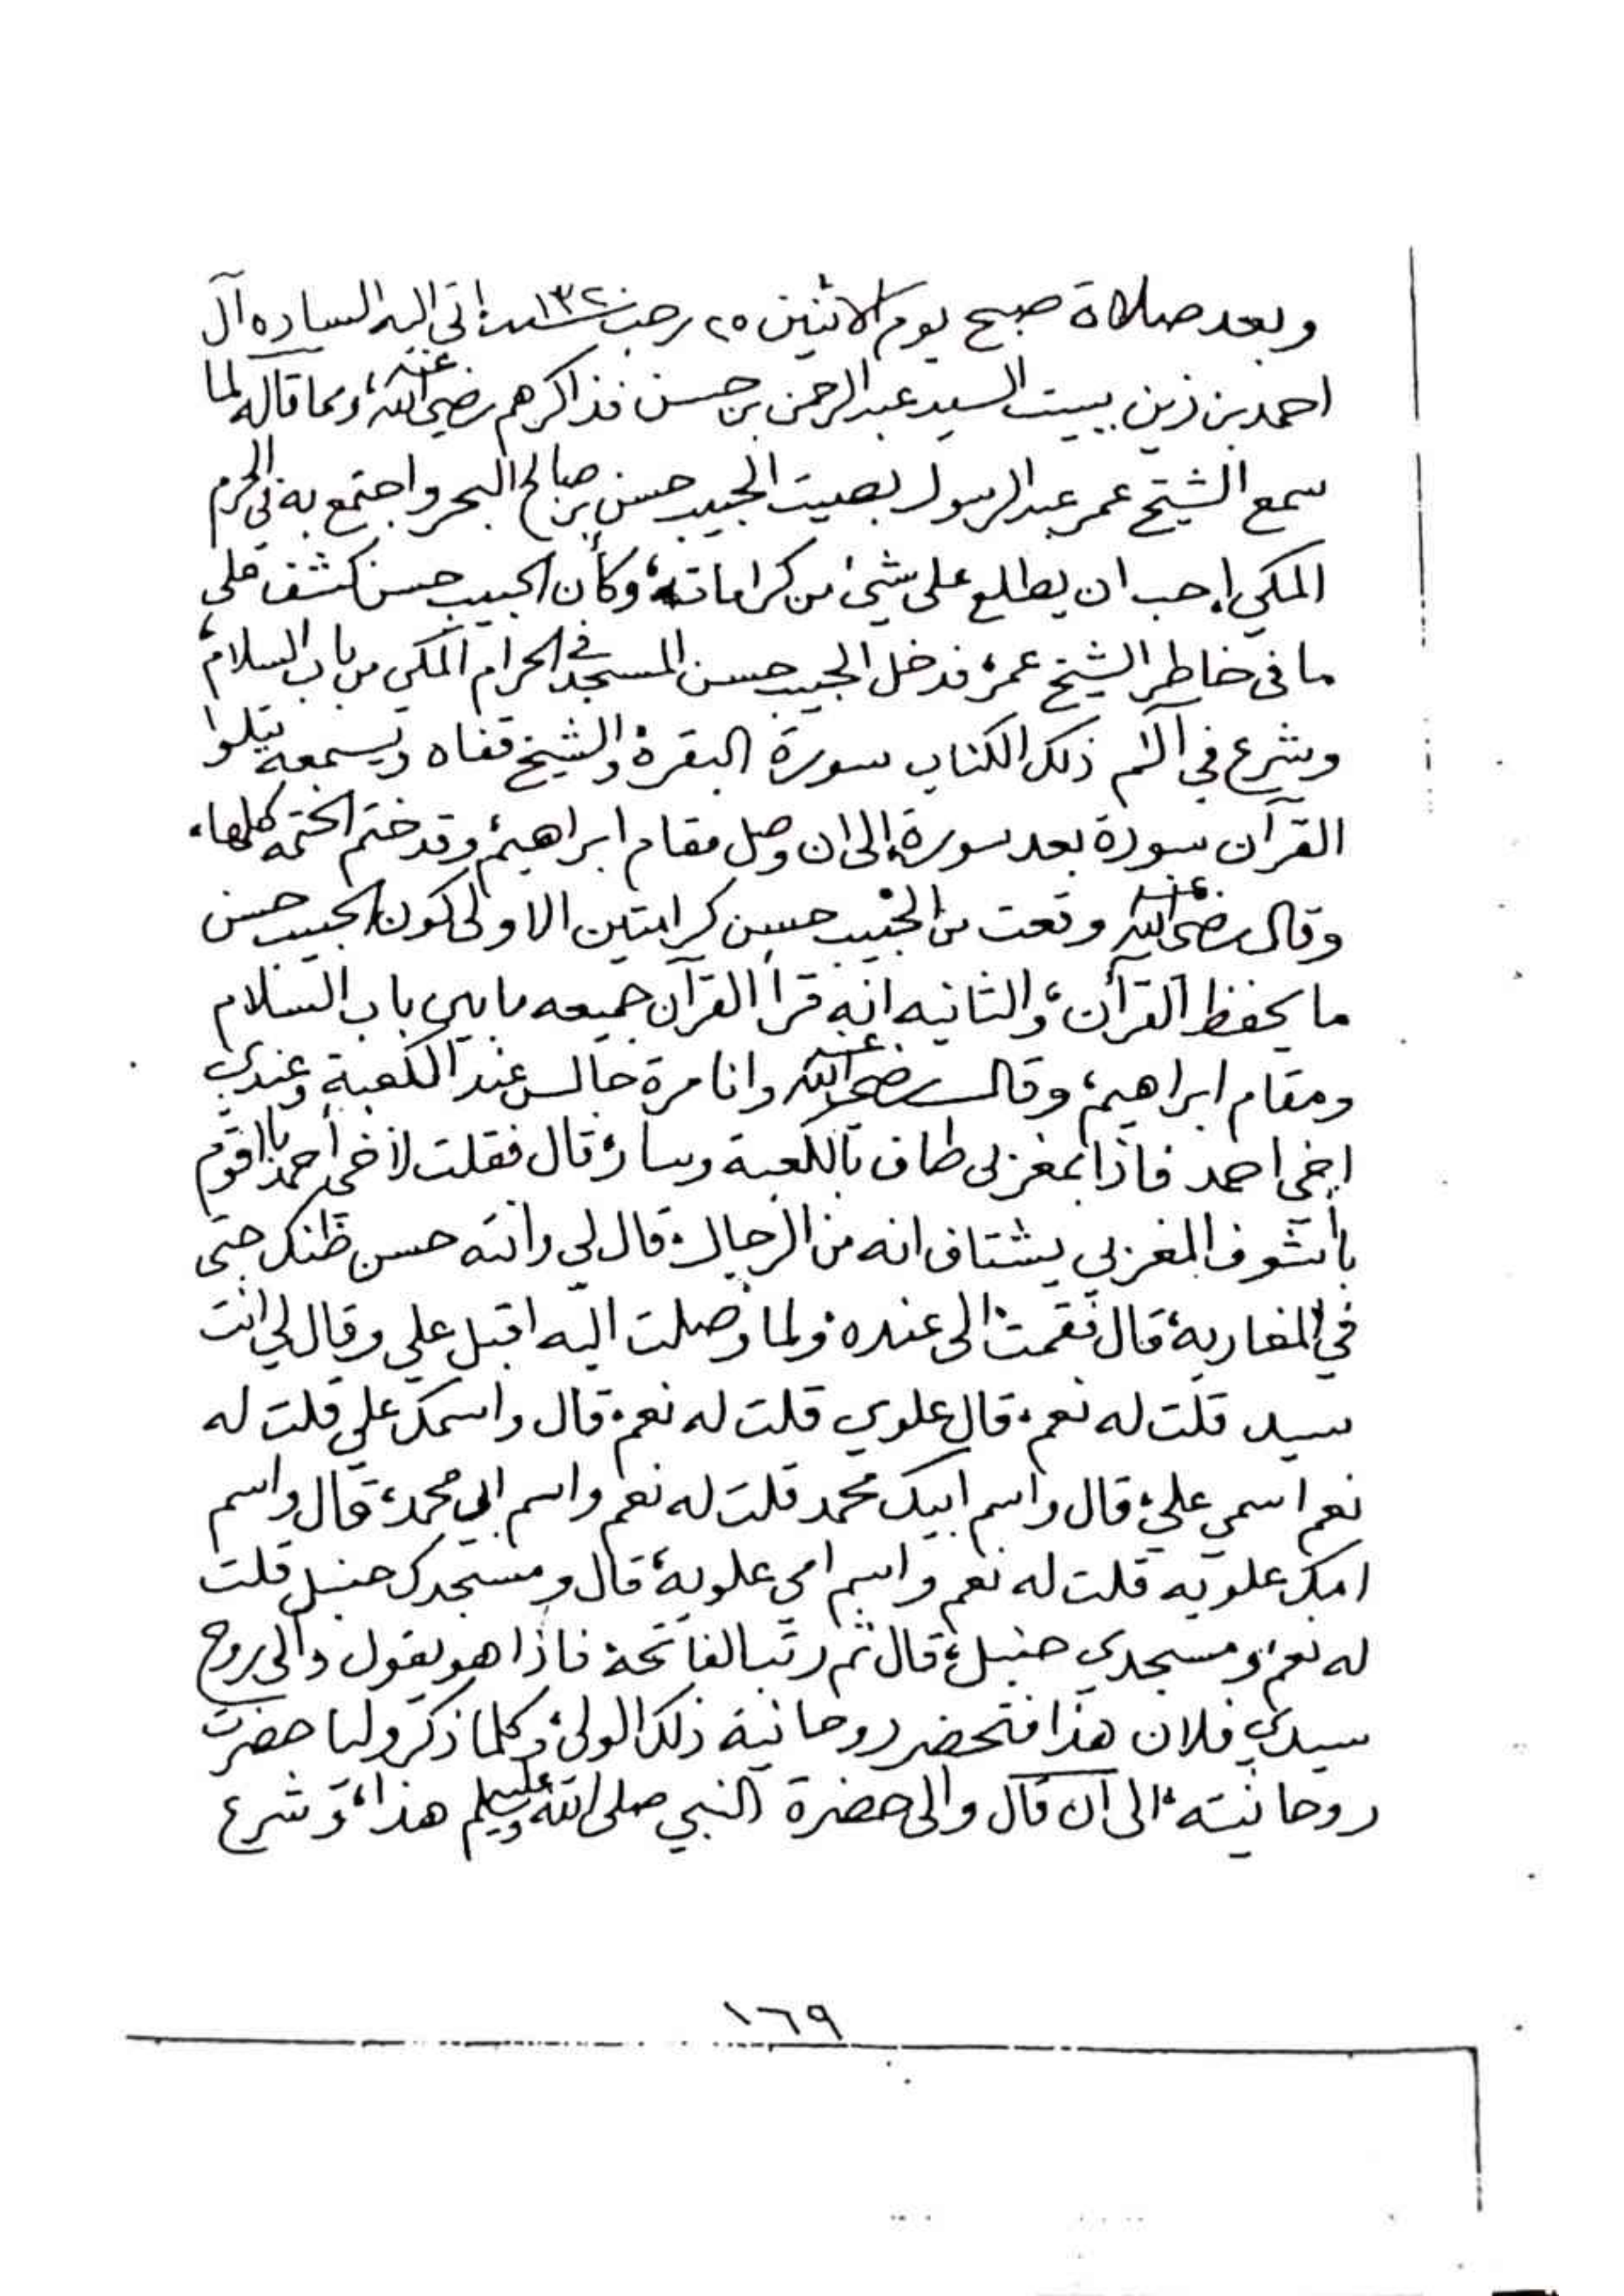 وبعد صلاة صبح يوم الاثنين ٢٥ رجب سنة ١٣٢٠ اتى اليه الساده آل
احمد بن زين ببيت السيد عبد الرحمن بن حسن فذاكرهم رضي الله عنه، ومما قاله لما
سمع الشيخ عمر عبد الرسول بصيت الحبيب حسن بن صالح البحر واجتمع به في الحرم
المكي احب ان يطلع على شيئ من كراماته، وكأن الحبيب حسن كشف على
ما في خاطر الشيخ عمر، فدخل الحبيب حسن المسجد الحرام في المكي من باب السلام،
وشرع في آلم ذلك الكتاب سورة البقرة، والشيخ قفاه ويسمعه يتلوا
القرآن سورة بعد سورة، الى ان وصل مقام ابراهيم، وقد ختم الختمه كلها،
وقال رضي الله عنه وقعت من الحبيب حسن كرامتين الاولى كون الحبيب حسن
ما يحفظ القرآن، والثانيه انه قرأ القرآن جميعه ما بين باب السلام
ومقام ابراهيم، وقال رضي الله عنه وانا مرة جالس عند الكعبة وعندي
اخي احمد فاذا بمغربي طاف بالكعبة وسار، قال فقلت لأخي أحمد با اقوم
بأشوف المغربي يشتاف انه من الرجال، قال لي وانته حسن ظنك حتى
في المغاربه، قال فقمت الى عنده، ولما وصلت اليه اقبل علي وقال لي انت
سيد قلت له نعم، قال علوي قلت له نعم، قال واسمك علي قلت له
نعم اسمي علي، قال واسم ابيك محمد قلت له نعم واسم ابي محمد، قال واسم
امك علويه قلت له نعم واسم امي علويه، قال ومسجدك حنبل قلت
له نعم، ومسجدي حنبل، قال ثم رتب الفاتحة فاذا هو يقول والى روح
سيدي فلان هذا فتحضر روحانية ذلك الولي، وكلما ذكر وليا حضرت
روحانيته، الى ان قال والى حضرة النبي صلى الله عليه وسلم هذا، وشرع
١٦٩